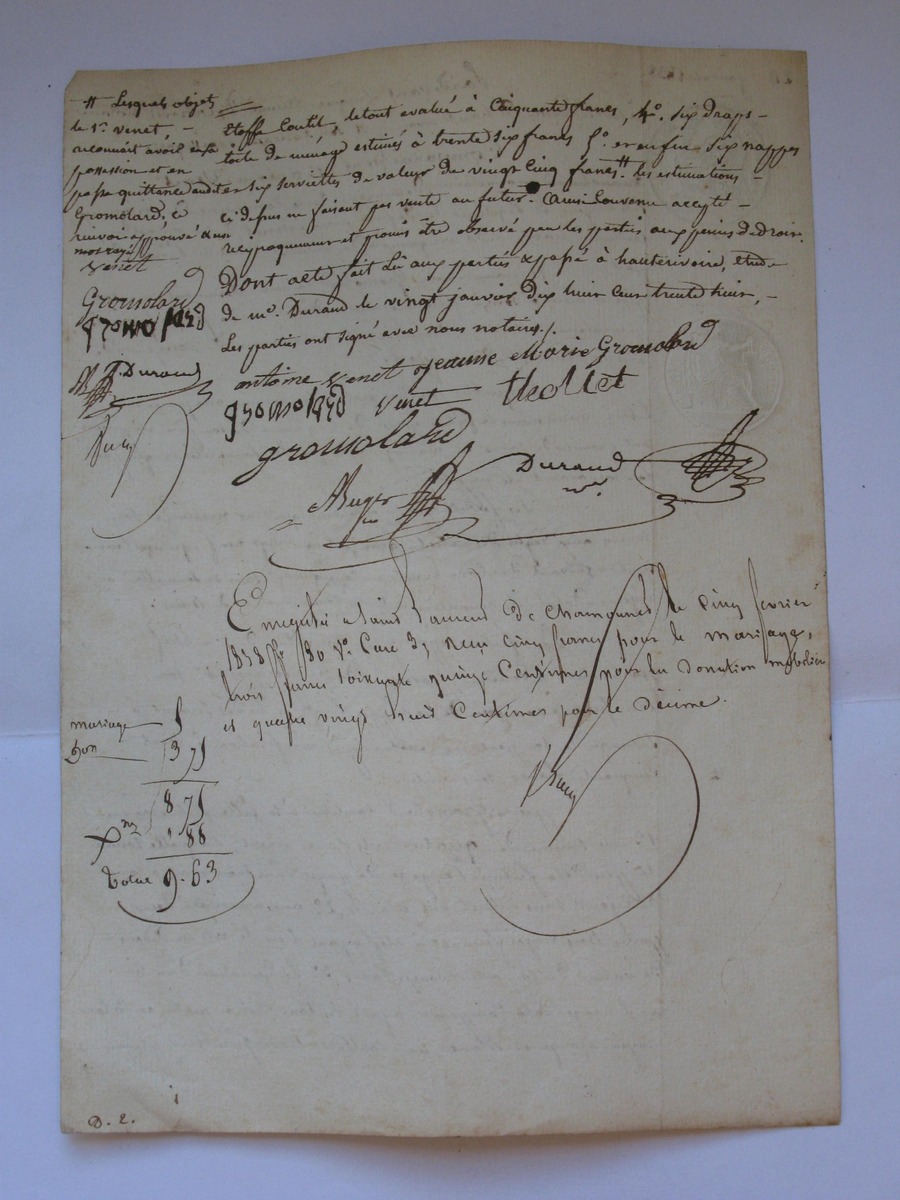 # Lesquels objets
le sr. Venet, -
reconnait avoir en sa
possession et en
passe quittance audit
Gromolard, ce
renvoi approuvé &
mot rayé
Venet
Gromolard
gromolard
Durand
étoffe Coutil, le tout evalué à Cinquante francs, 4o. Six draps -
toile de ménage estimés à trente Six francs 5o. et enfin Six nappes
et Six Serviettes de valeur de vingt Cinq francs # les estimations -
ci-dessus ne faisant pas vente au futur. Ainsi Convenu accepté -
reciproquement et promis être observé par les parties aux peines de droit.
Dont acte fait Lu aux parties & passé à hauterivoire, étude
de me. Durand le vingt janvier dix huit Cent trente huit, -
Les parties ont signé avec nous notaires./.
antoine Venet jeanne Marie Gromolard
gromolard Venet thollet
gromolard
Durand
Enregistré a Saint Laurent De Chamousset le cinq fevrier
1838 fo 30 Vo. Case 3, Reçu cinq francs pour le mariage,
trois francs soixante quinze Centimes pour la Donation mobilière
et quatre vingt huit Centimes pour le Décime.
mariage 5
Don 3 75
8 75
Xme 88
Total 9.63
D. 2.